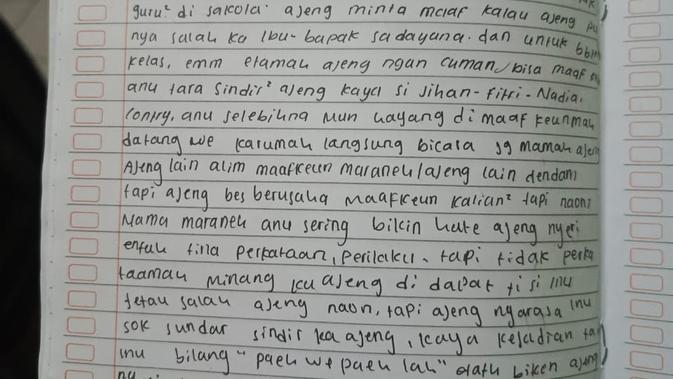 guru² di sakola. ajeng minta maaf kalau ajeng pu
nya salah ka Ibu-bapak sadayana. dan untuk
kelas, emm etamah ajeng ngan cuman bisa maaf
anu tara sindir² ajeng kaya si Jihan-Fitri-Nadia.
sorry, anu selebihna mun hayang di maaf keun mah
datang we karumah langsung bicara jg mamah ajeng
Ajeng lain alim maafkeun maraneh/ajeng lain dendam
tapi ajeng bes berusaha maafkeun kalian² tapi naon
Nama maraneh anu sering bikin hate ajeng nyeri
entah tina perkataan, perilaku. tapi tidak perka
taamah minang ka ajeng di dapat ti si inu
tetau salah ajeng naon, tapi ajeng ngarasa inu
sok sundar sindir ka ajeng, kaya kejadian
inu bilang "paeh we paeh lah" etath biken ajeng